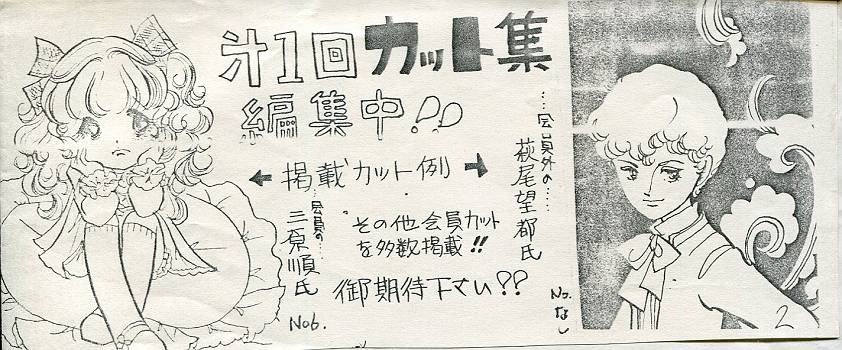 汁1回カット集
編集中!!
…会員外の……
萩尾望都氏
No.なし
← 掲載カット例 →
…会員の…
三原順氏
No6.
その他会員カット
を多数掲載!!
御期待下さい??
2